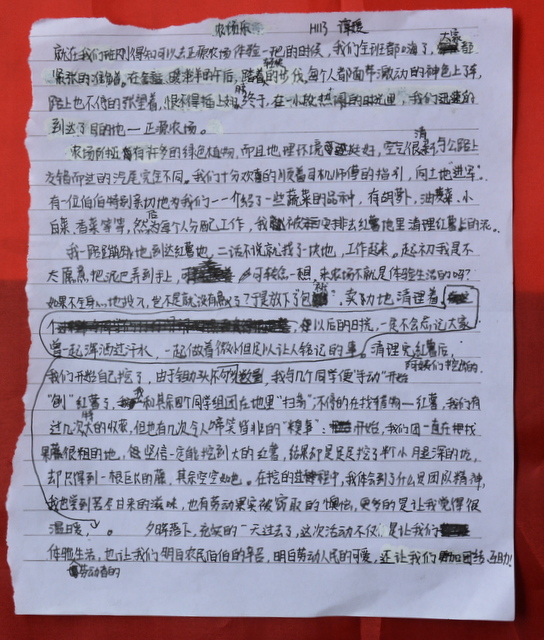 农场乐 H113 谭媛
就在我们班刚得知可以去正原农场体验一把的时候，我们全班都嗨了，大家都
紧张的准备着。在 暖洋洋的午后，踏着轻快的步伐，每个人都面带激动的神色上了车，
路上也不停的张望着，恨不得插上翅膀。终于，在一小段热闹的时光里，我们迅速的
到达了目的地—正原农场。
农场所拥有许多的绿色植物，而且地理环境挺好，空气很清新，与公路上
交错而过的汽尾完全不同。我们十分欢喜的顺着司机师傅的指引，向土地"进军"。
有一位伯伯特别亲切地为我们一一介绍了一些蔬菜的品种，有胡萝卜、油麦菜、小
白菜、香菜等等，然后为每个人分配工作，我被安排去红薯地里清理红薯上的泥。
我一路蹦蹦跳跳地到达红薯地，二话不说就找了一块地，工作起来。起初我是不
大愿意把泥巴弄到手上，可转念一想，来农场不就是体验生活的吗？
如果不全身心地投入，也不是就没有意义了？于是放下了包袱，卖力地清理着，
在以后的日光，一定不会忘记大家
曾一起挥洒过汗水，一起做着微小但足以让人铭记的事。清理完红薯后，
我们开始自己挖了，由于锄头 数量，我与几个同学便"手动"开始
"刨"红薯了，我和其余四个同学组团在地里"扫荡"，不停的在找猎物—红薯，我们有
过几次大的收获，但也有几次令人啼笑皆非的"糗事"：开始，我们团一直在挖找
藤很粗的地，便坚信一定能挖到大的红薯，结果却是足足挖了半个小时超深的坑，
却只得到一根巨大的藤，其余空空如也。在挖的过程中，我体会到了什么是团队精神，
我也尝到苦尽甘来的滋味，也有劳动果实被窃取的懊恼，更多的是让我觉得很
温暖。 夕阳落下，充实的一天过去了，这次活动不仅是让我们
体验生活，也让我们明白农民伯伯的辛苦，明白劳动人民的可爱，还让我们 团结、互助！
劳动者的